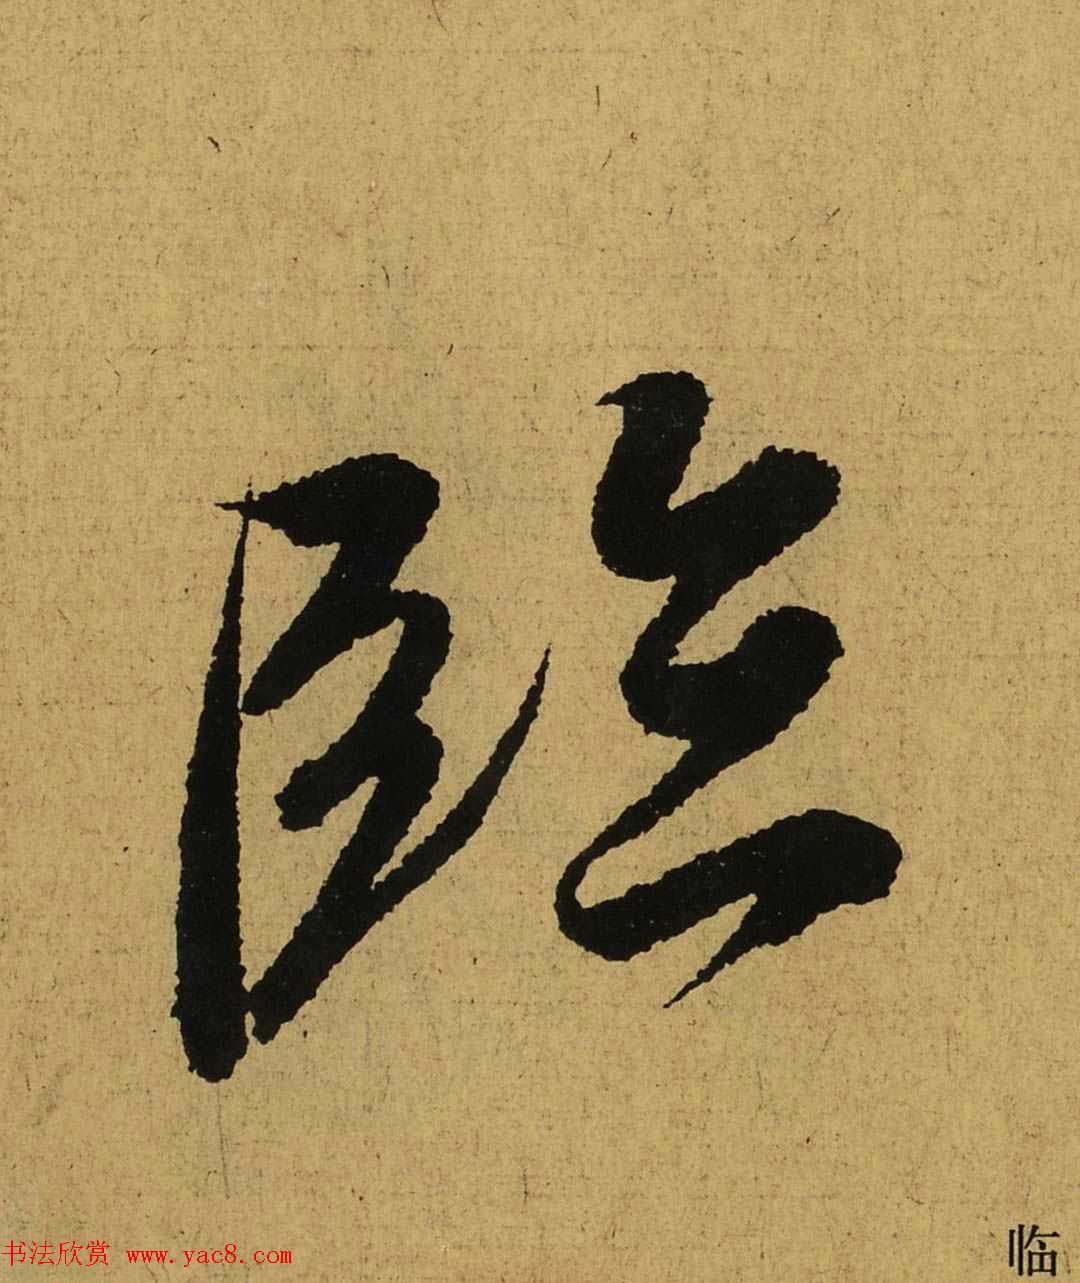 臨
临
书法欣赏 www.yac8.com